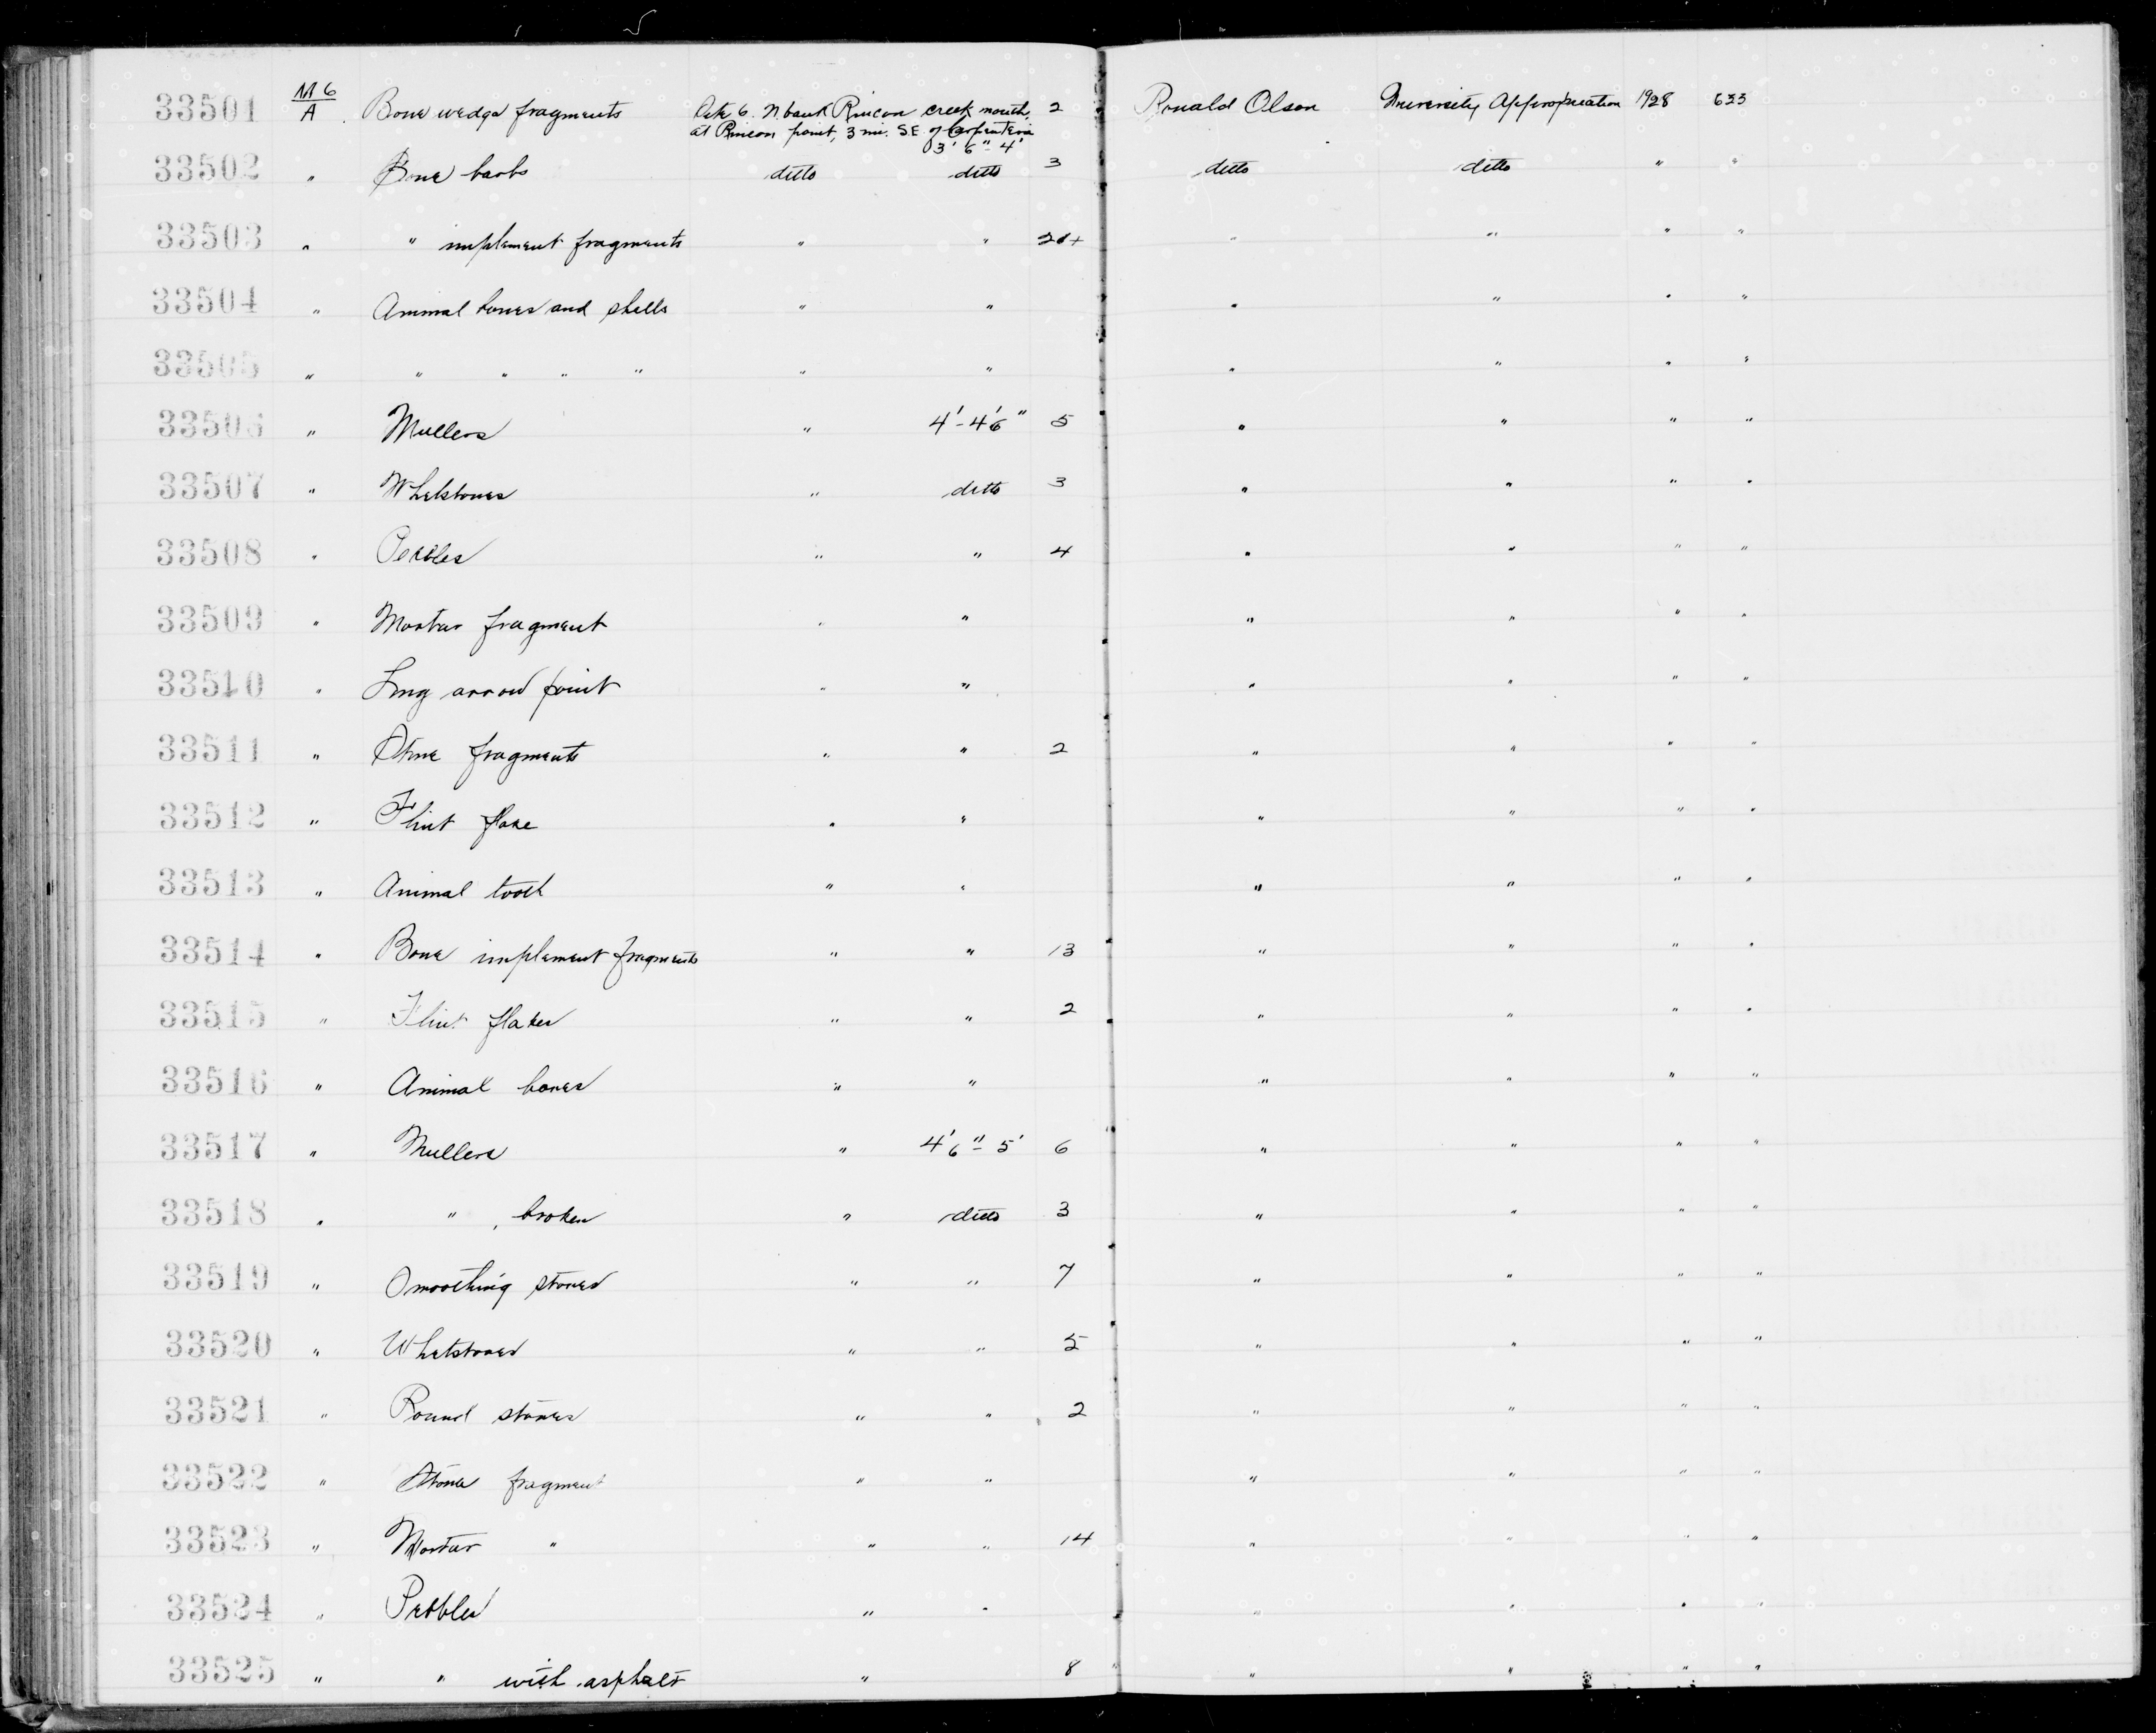 33501 M6/A Bone wedge fragments Site 6. N. bank Rincon creek mouth, 2 Ronald Olson University Appropriation 1928 633
at Rincon point, 3 mi. SE of Carpinteria
3' 6" - 4'
33502 " Bone barbs ditto ditto 3 ditto ditto " "
33503 " " implement fragments " " " " " "
33504 " Animal bones and shells " " " " " "
33505 " " " " " " " " " " "
33506 " Mullers " 4' - 4'6" 5 " " " "
33507 " Whetstones " ditto 3 " " " "
33508 " Pebbles " " 4 " " " "
33509 " Mortar fragment " " " " " "
33510 " Long arrow point " " " " " "
33511 " Stone fragments " " 2 " " " "
33512 " Flint flake " " " " " "
33513 " Animal tooth " " " " " "
33514 " Bone implement fragments " " 13 " " " "
33515 " Flint flakes " " 2 " " " "
33516 " Animal bones " " " " " "
33517 " Mullers " 4'6" - 5' 6 " " " "
33518 " " , broken " ditto 3 " " " "
33519 " Smoothing stones " " 7 " " " "
33520 " Whetstones " " 5 " " " "
33521 " Round stones " " 2 " " " "
33522 " Stone fragment " " " " " "
33523 " Mortar " " " 14 " " " "
33524 " Pebbles " " " " " "
33525 " " with asphalt " 8 " " " "